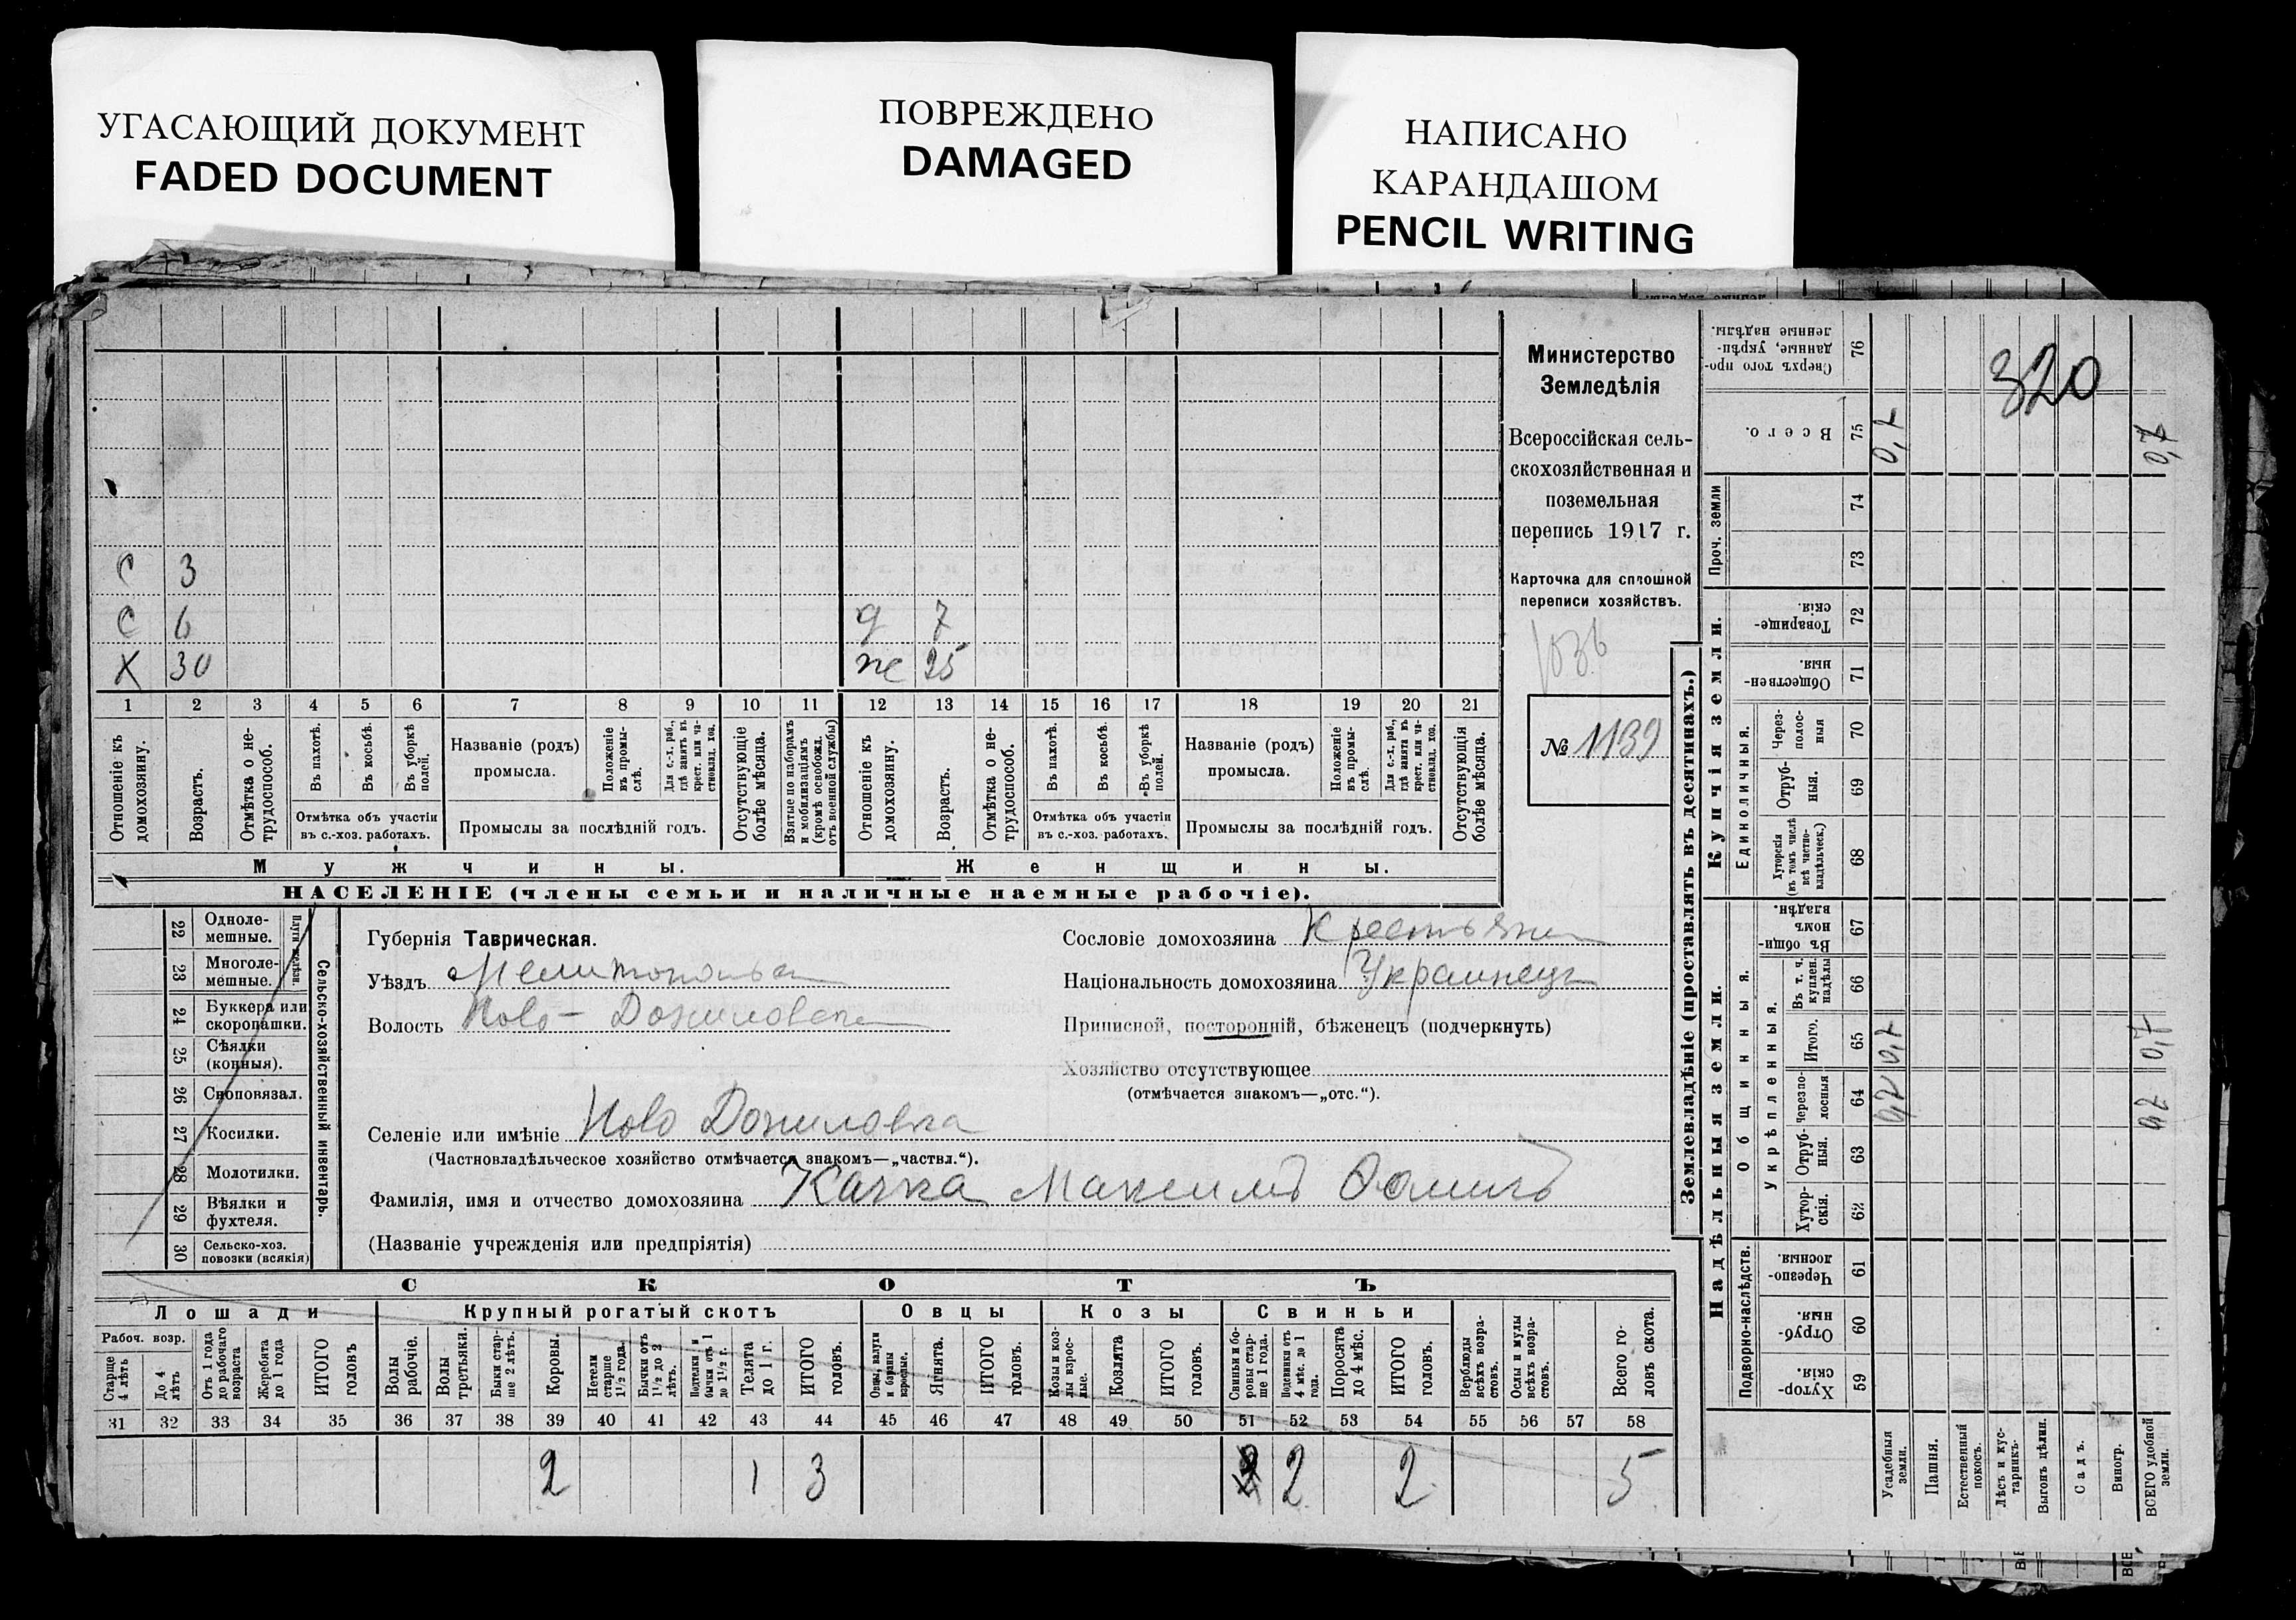 УГАСАЮЩИЙ ДОКУМЕНТ
FADED DOCUMENT
ПОВРЕЖДЕНО
DAMAGED
НАПИСАНО
КАРАНДАШОМ
PENCIL WRITING
Министерство
Земледѣлія
Всероссійская сель-
скохозяйственная и
поземельная
перепись 1917 г.
Карточка для сплошной
переписи хозяйствъ.
№ 1139
320
С 3
С 6
д 7
Х 30
же 25
1 2 3 4 5 6 7 8 9 10 11 12 13 14 15 16 17 18 19 20 21
Отношеніе къ домохозяину.
Возрастъ.
Отмѣтка о не-трудоспособ.
Въ пахотѣ.
Въ косьбѣ.
Въ уборкѣ полей.
Отмѣтка объ участіи
въ с.-хоз. работахъ.
Названіе (родъ)
промысла.
Положеніе въ промы-слѣ.
Для с.-х. раб., гдѣ занятъ въ крест. или ча-стновлад. хоз.
Промыслы за послѣдній годъ.
Отсутствующіе болѣе мѣсяца.
Взятые по наборамъ и мобилизаціямъ (кромѣ освобожд. отъ военной службы)
Отношеніе къ домохозяину.
Возрастъ.
Отмѣтка о не-трудоспособ.
Въ пахотѣ.
Въ косьбѣ.
Въ уборкѣ полей.
Отмѣтка объ участіи
въ с.-хоз. работахъ.
Названіе (родъ)
промысла.
Положеніе въ промы-слѣ.
Для с.-х. раб., гдѣ занята въ крест. или ча-стновлад. хоз.
Промыслы за послѣдній годъ.
Отсутствующія болѣе мѣсяца.
Мужчины.
Женщины.
НАСЕЛЕНІЕ (члены семьи и наличные наемные рабочіе).
22 Однолемешные.
23 Многолемешные.
24 Буккера или скоропашки.
25 Сѣялки (конныя).
26 Сноповязал.
27 Косилки.
28 Молотилки.
29 Вѣялки и фухтеля.
30 Сельско-хоз. повозки (всякія)
Сельско-хозяйственный инвентарь.
Губернія Таврическая.
Уѣздъ
Волость Ново-
Селеніе или имѣніе Ново
(Частновладѣльческое хозяйство отмѣчается знакомъ—„частвл.“).
Фамилія, имя и отчество домохозяина Качка Максимъ
(Названіе учрежденія или предпріятія)
Сословіе домохозяина
Національность домохозяина Украинецъ
Приписной, посторонній, бѣженецъ (подчеркнуть)
Хозяйство отсутствующее
(отмѣчается знакомъ—„отс.“).
СКОТЪ
Лошади
Крупный рогатый скотъ
Овцы
Козы
Свиньи
Рабоч. возр.
Старше 4 лѣтъ
До 4 лѣтъ
Отъ 1 года до рабочаго возраста
Жеребята до 1 года
ИТОГО головъ
Волы рабочіе.
Волы третьяки.
Быки стар-ше 2 лѣтъ.
Коровы.
Нетели старше 1½ года.
Бычки отъ 1½ до 2 лѣтъ.
Подтелки и бычки отъ 1 до 1½ г.
Телята до 1 г.
ИТОГО головъ.
Овцы, валухи и бараны взрослые.
Ягнята.
ИТОГО головъ.
Козы и коз-лы взрос-лые.
Козлята
ИТОГО головъ.
Свиньи и бо-ровы стар-ше 1 года.
Подсвинки отъ 4 мѣс. до 1 года.
Поросята до 4 мѣс.
ИТОГО головъ.
Верблюды всѣхъ возра-стовъ.
Ослы и мулы всѣхъ возра-стовъ.
Всего го-ловъ скота.
31 32 33 34 35 36 37 38 39 40 41 42 43 44 45 46 47 48 49 50 51 52 53 54 55 56 57 58
2 1 3 2 2 5
Землевладѣніе (проставлять въ десятинахъ.)
Надѣльныя земли.
Купчія земли.
Проч. земли
Подворно-наслѣдств.
Общинныя.
Укрѣпленныя.
Единоличныя.
76 Сверхъ того про-данные, укрѣп-ленные надѣлы.
75 Всего. 0,7
74
73
72 Товарище-скія.
71 Обществен-ныя.
70 Через-полос-ныя
69 Отруб-ныя.
68 Хуторскія (въ томъ числѣ всѣ частно-владѣльческ.)
67 Въ общи-номъ владѣн.
66 Въ т. ч. куплен. надѣлы
65 Итого. 0,7
64 Черезпо-лосныя
63 Отруб-ныя.
62 Хутор-скія.
61 Черезпо-лосныя
60 Отруб-ныя.
59 Хутор-скія.
Усадебныя земли.
Пашня.
Естественный покосъ.
Лѣсъ и кус-тарникъ.
Выгонъ цѣлин.
Садъ.
Виногр.
ВСЕГО удобной земли.
0,7
0,7